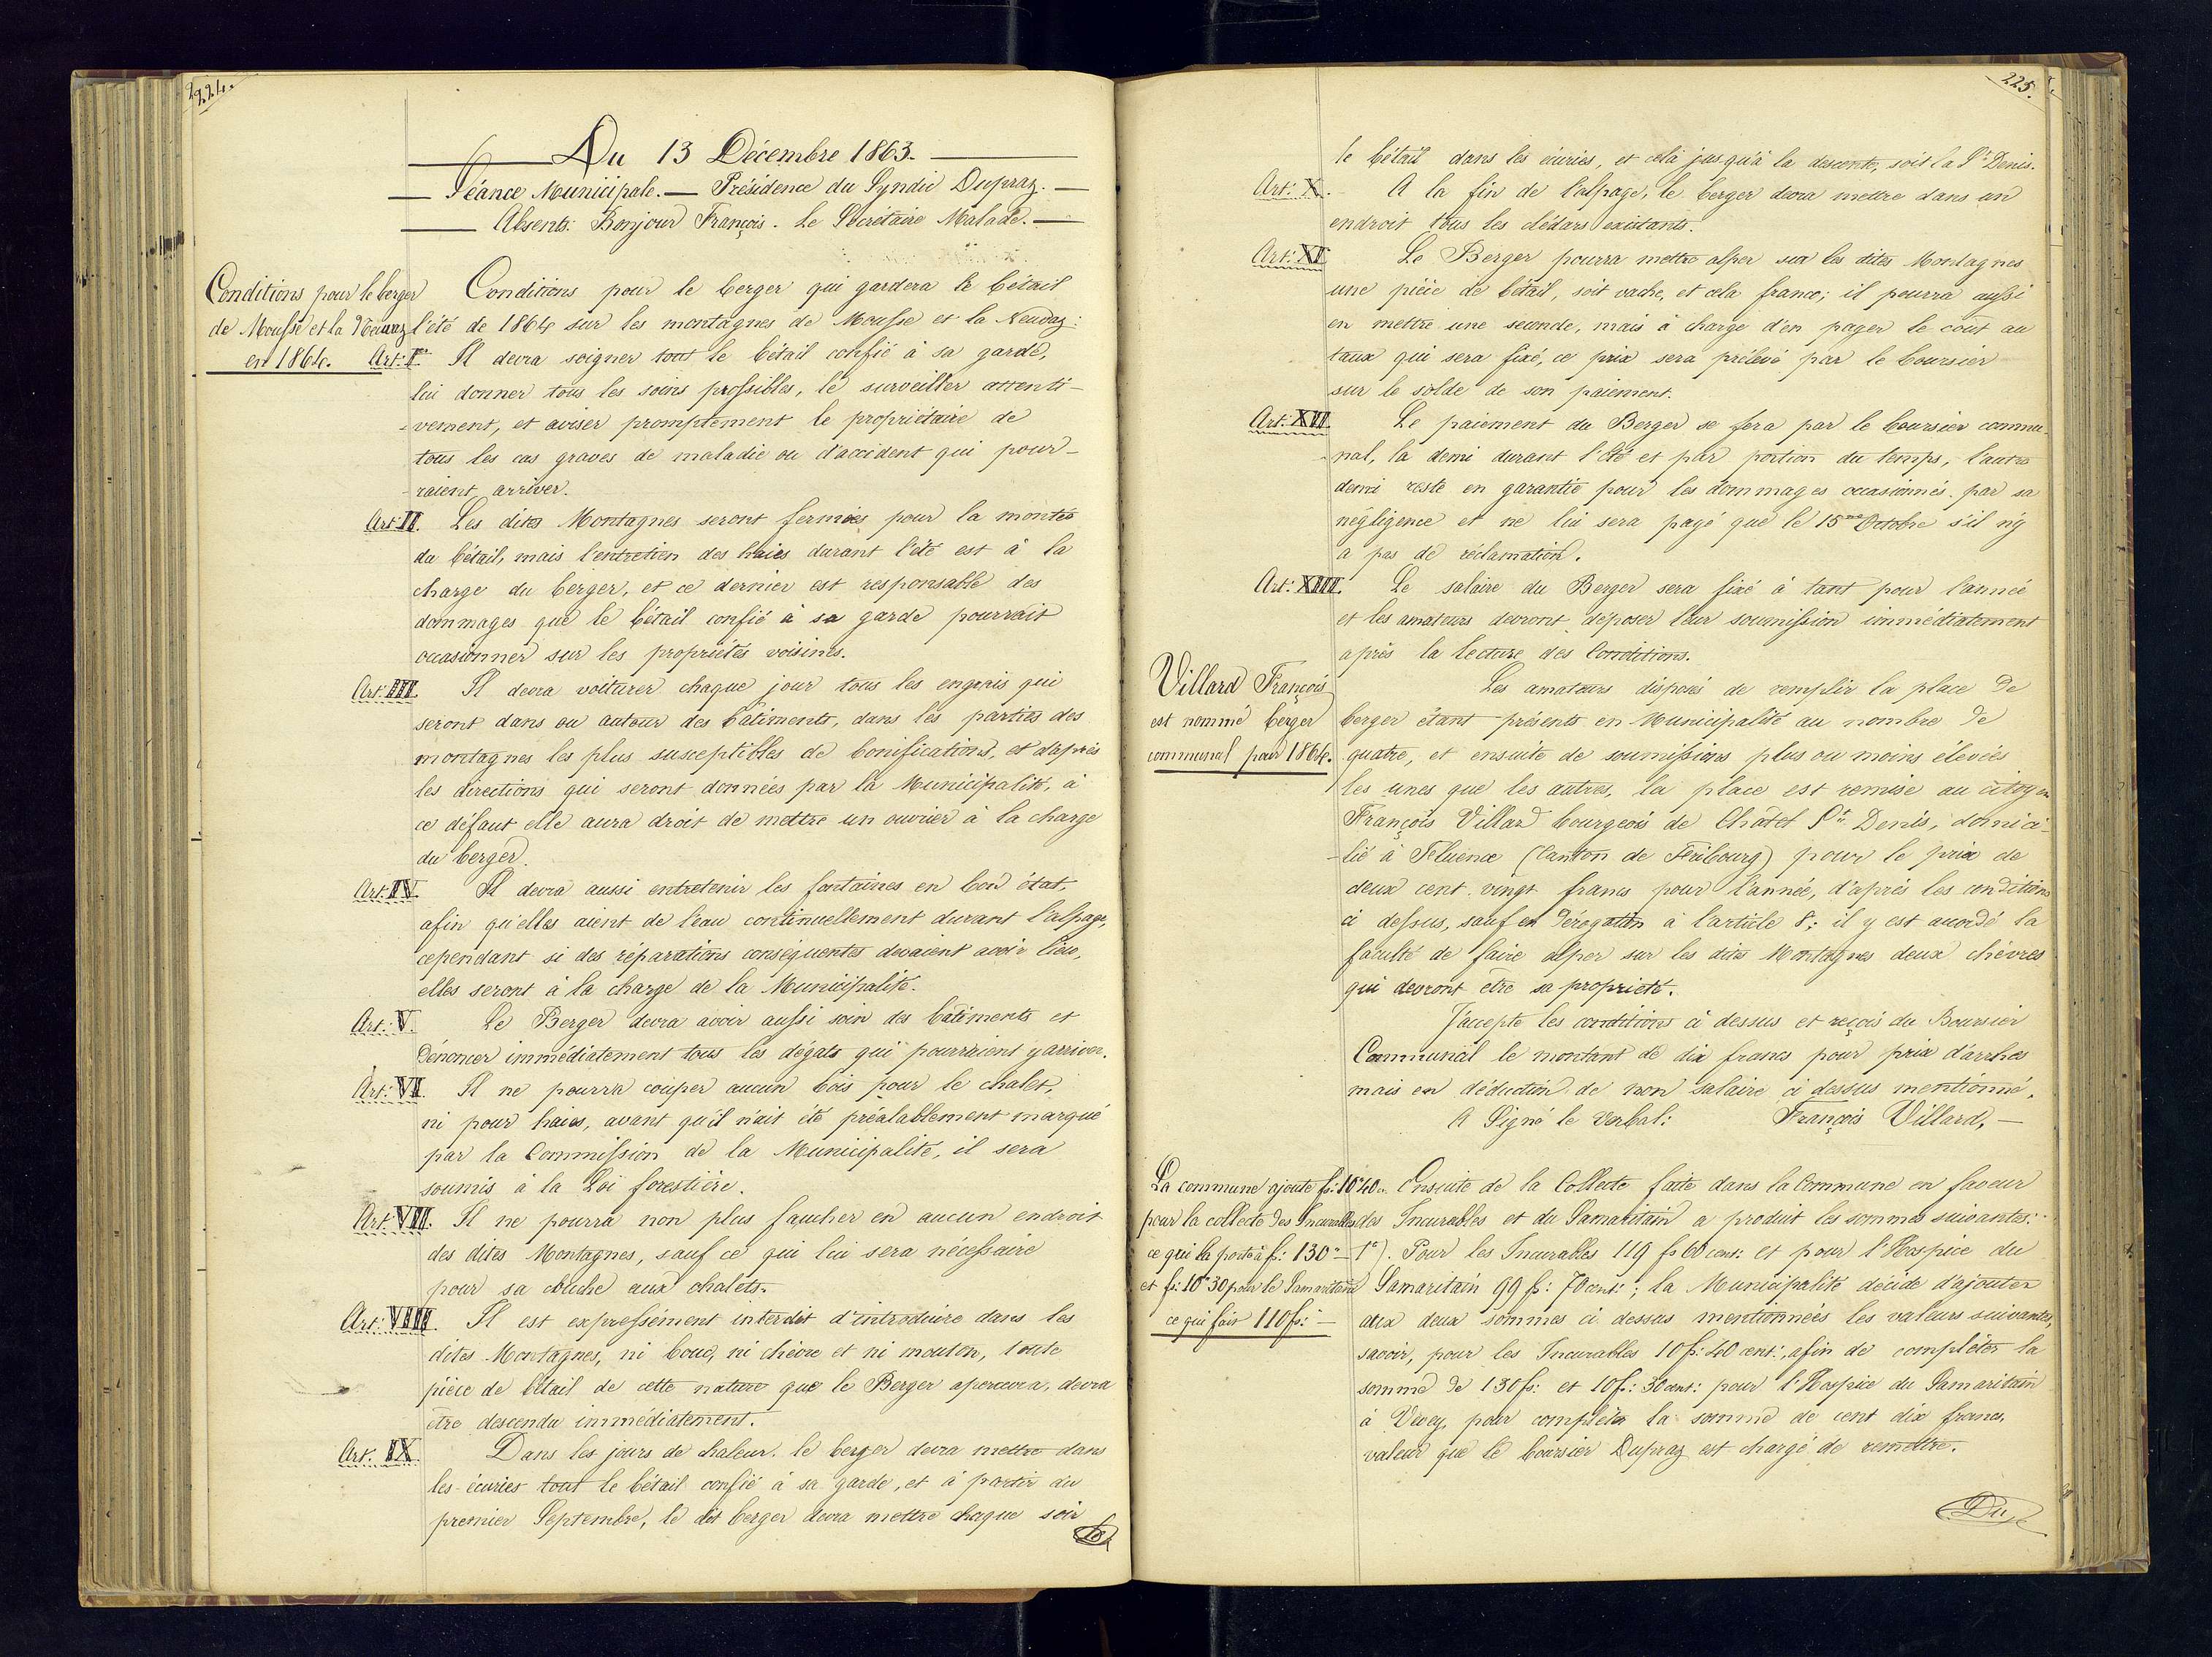 224.
Du 13 Décembre 1863.
Séance Municipale. — Présidence du Syndic Dupraz. —
Absents: Bonjour François. Le Secrétaire Malade. —
Conditions pour le berger
de Mousse et la Neuvaz
en 1864.
Conditions pour le berger qui gardera le bétail
l'été de 1864 sur les montagnes de Mousse et la Neuvaz:
Art: I. Il devra soigner tout le bétail confié à sa garde,
lui donner tous les soins possibles, le surveiller attenti-
-vement, et aviser promptement le propriétaire de
tous les cas graves de maladie ou d'accident qui pour-
-raient arriver.
Art: II. Les dites Montagnes seront fermées pour la montée
du bétail, mais l'entretien des haies durant l'été est à la
charge du berger, et ce dernier est responsable des
dommages que le bétail confié à sa garde pourrait
occasionner sur les propriétés voisines.
Art: III. Il devra voiturer chaque jour tous les engrais qui
seront dans ou autour des bâtiments, dans les parties des
montagnes les plus susceptibles de bonifications, et d'après
les directions qui seront données par la Municipalité, à
ce défaut elle aura droit de mettre un ouvrier à la charge
du berger.
Art: IV. Il devra aussi entretenir les fontaines en bon état,
afin qu'elles aient de l'eau continuellement durant l'alpage,
cependant si des réparations conséquentes devaient avoir lieu,
elles seront à la charge de la Municipalité.
Art: V. Le Berger devra avoir aussi soin des bâtiments et
dénoncer immédiatement tous les dégats qui pourraient y arriver.
Art: VI. Il ne pourra couper aucun bois pour le chalet,
ni pour haies, avant qu'il n'ait été préalablement marqué
par la Commission de la Municipalité, il sera
soumis à la Loi forestière.
Art: VII. Il ne pourra non plus faucher en aucun endroit
des dites Montagnes, sauf ce qui lui sera nécessaire
pour sa couche aux chalets.
Art: VIII. Il est expressément interdit d'introduire dans les
dites Montagnes, ni bouc, ni chèvre et ni mouton, toute
pièce de bétail de cette nature que le Berger apercevra, devra
être descendu immédiatement.
Art: IX. Dans les jours de chaleur, le berger devra mettre dans
les écuries tout le bétail confié à sa garde, et à partir du
premier Septembre, le dit berger devra mettre chaque soir
le
225.
le bétail dans les écuries, et cela jusqu'à la descente, soit la St Denis.
Art: X. A la fin de l'alpage, le berger devra mettre dans un
endroit tous les clédars existants.
Art: XI. Le Berger pourra mettre alper sur les dites Montagnes
une pièce de bétail, soit vache, et cela franco; il pourra aussi
en mettre une seconde, mais à charge d'en payer le coût au
taux qui sera fixé, ce prix sera prélévé par le boursier
sur le solde de son paiement.
Art: XII. Le paiement du Berger se fera par le boursier commu-
-nal, la demi durant l'été et par portion du temps, l'autre
demi reste en garantie pour les dommages occasionnés par sa
négligence et ne lui sera payé que le 15me Octobre s'il n'y
a pas de réclamation.
Art: XIII. Le salaire du Berger sera fixé à tant pour l'année
et les amateurs devront déposer leur soumission immédiatement
après la lecture des Conditions.
Villard François
est nommé berger
communal pour 1864.
Les amateurs disposés de remplir la place de
berger étant présents en Municipalité au nombre de
quatre, et ensuite de soumissions plus ou moins élevées
les unes que les autres, la place est remise au citoyen
François Villard bourgeois de Chatel St Denis, domici-
-lié à (Canton de Fribourg) pour le prix de
deux cent vingt francs pour l'année, d'après les conditions
ci dessus, sauf en dérogation à l'article 8; il y est accordé la
faculté de faire alper sur les dites Montagnes deux chèvres
qui devront être sa propriété.
J'accepte les conditions ci dessus et reçois du Boursier
Communal le montant de dix francs pour prix d'arrhes
mais en déduction de mon salaire ci dessus mentionné.
A Signé le verbal: François Villard, —
La commune ajoute fs: 10"40 cs
pour la collecte des Incurables
ce qui la porte à fs: 130"—
et fs: 10"30 pour le Samaritain
ce qui fait 110 fs: —
Ensuite de la Collecte faite dans la Commune en faveur
des Incurables et du Samaritain a produit les sommes suivantes:
1°). Pour les Incurables 119 fs 60 cent: et pour l'Hospice du
Samaritain 99 fs: 70 cent:; la Municipalité décide d'ajouter
aux deux sommes ci dessus mentionnées les valeurs suivantes,
savoir, pour les Incurables 10 fs: 40 cent:, afin de compléter la
somme de 130 fs: et 10 fs: 30 cent: pour l'Hospice du Samaritain
à Vevey, pour compléter la somme de cent dix francs,
valeur que le boursier Dupraz est chargé de remettre.
Du